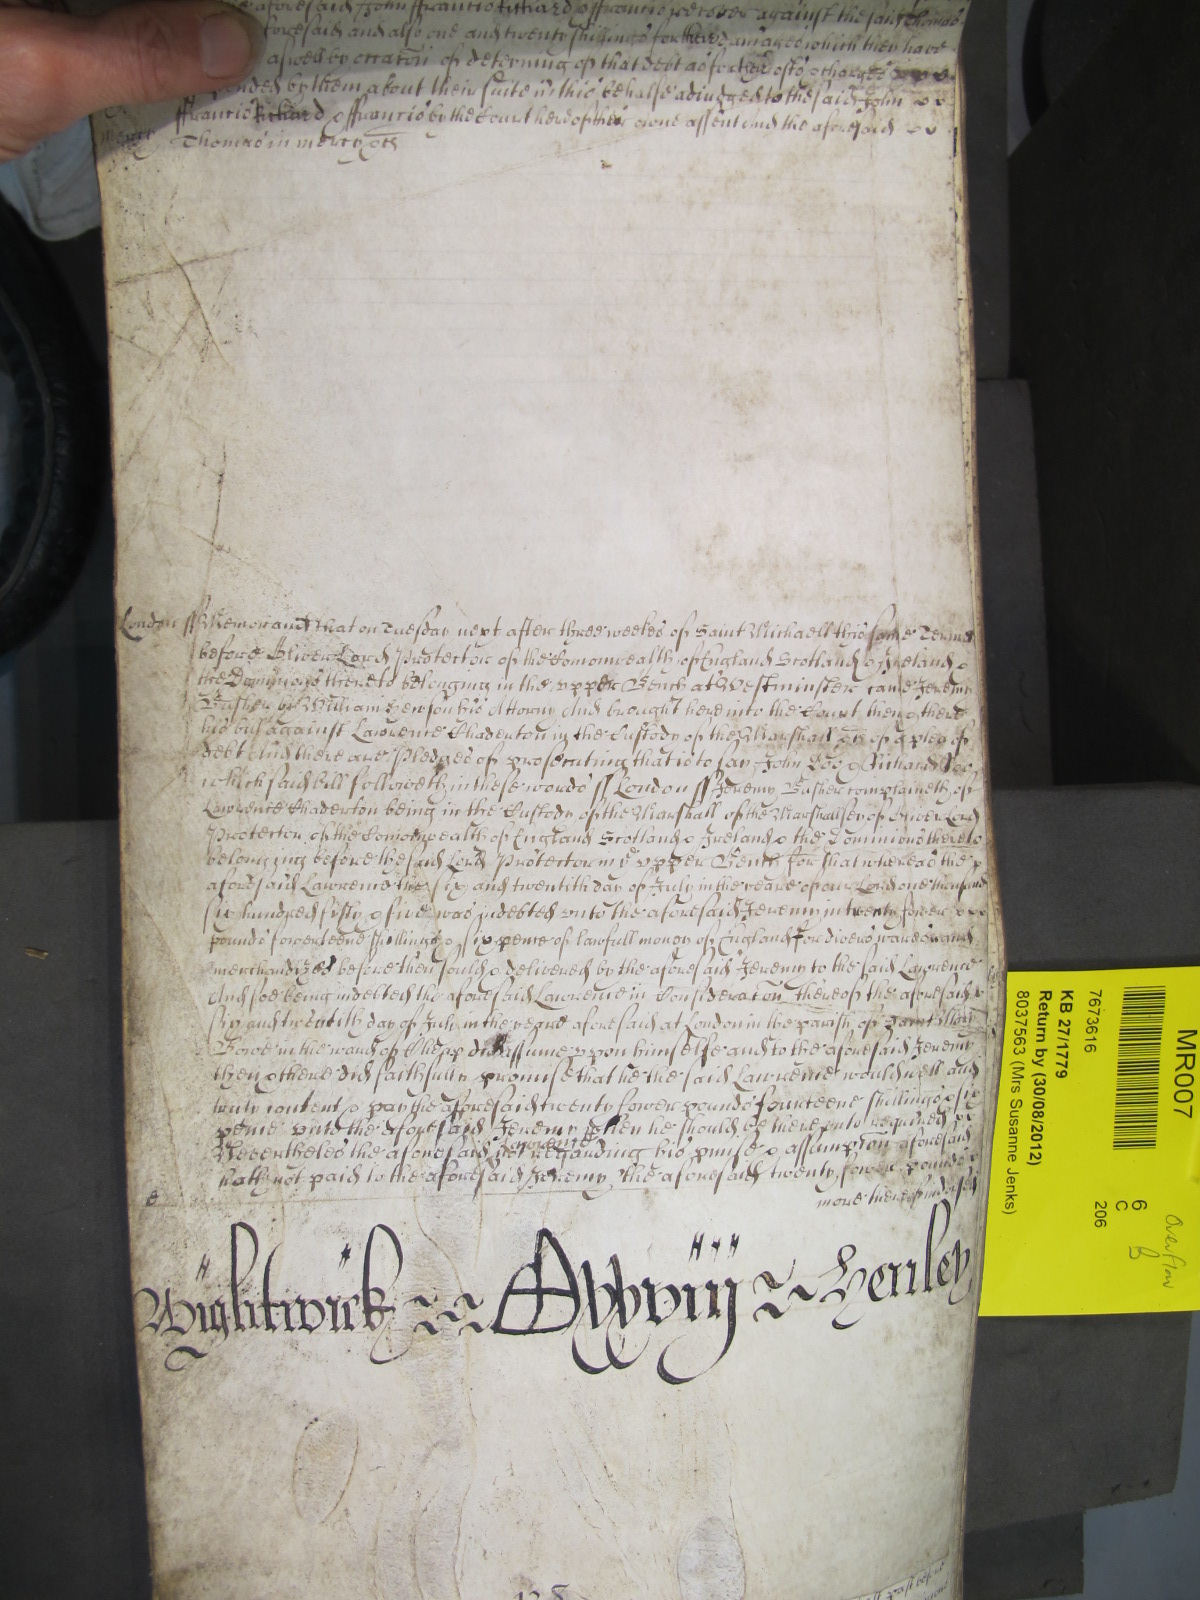 aforesaid John ffrancis Richard & ffrancis recover against the said Thomas
aforesaid and also one and twenty shillings for their damages which they have
aswell by occation of deteining of that debt as for their costs & charges
by them about their suite in this behalfe adiudged to the said John
ffrancis Richard & ffrancis by the Court here of their owne assent And the aforesaid
mercy Thomas in mercy &c
London ss Memorand that on Tuesday next after three weekes of Saint Michaell this same Terme
before Oliver Lord Protector of the Comonwealth of England Scotland & Ireland &
the Dominions thereto belonging in the upper Bench at Westminster came Jeremy
Basher by William his Attorny And brought here into the Court then & there
his bill against Lawrence Chaderton in the Custody of the Marshall &c of a plea of
debt And there are Pledges of prosecuting that is to say John Doe & Richard Roe
which said bill followeth in these words ss London ss Jeremy Basher complaineth of
Lawrence Chaderton being in the Custody of the Marshall of the Marshalsey of Oliver Lord
Protector of the Comonwealth of England Scotland & Ireland & the Dominions thereto
belonging before the said Lord Protector in ye upper Bench for that whereas the
aforesaid Lawrence the six and twentith day of July in the yeare of our Lord one thousand
six hundred fifty & five was indebted unto the aforesaid Jeremy in twenty fower
pounds fowerteene shillings & sixpence of lawfull money of England for divers wares and
merchandizes before then sould & delivered by the aforesaid Jeremy to the said Lawrence
And soe being indebted the aforesaid Lawrence in Consideracon thereof the aforesaid
six and twentith day of July in the yeare aforesaid at London in the parish of Saint Mary
Bowe in the ward of Cheap did assume uppon himselfe and to the aforesaid Jeremy
then & there did faithfully promise that he the said Lawrence would well and
truly content & pay the aforesaid twenty fower pounds fourteene shillings & six
pence unto the aforesaid Jeremy when he should be thereunto required
Neverthelesse the aforesaid Lawrence not regarding his promise & assumption aforesaid
hath not paid to the aforesaid Jeremy the aforesaid twenty fower pounds
more thereof indorsed
Wightwick Henley
MR007
7673616
KB 27/1779
Return by (30/08/2012)
8037563 (Mrs Susanne Jenks)
6
C
206
Overflow
B